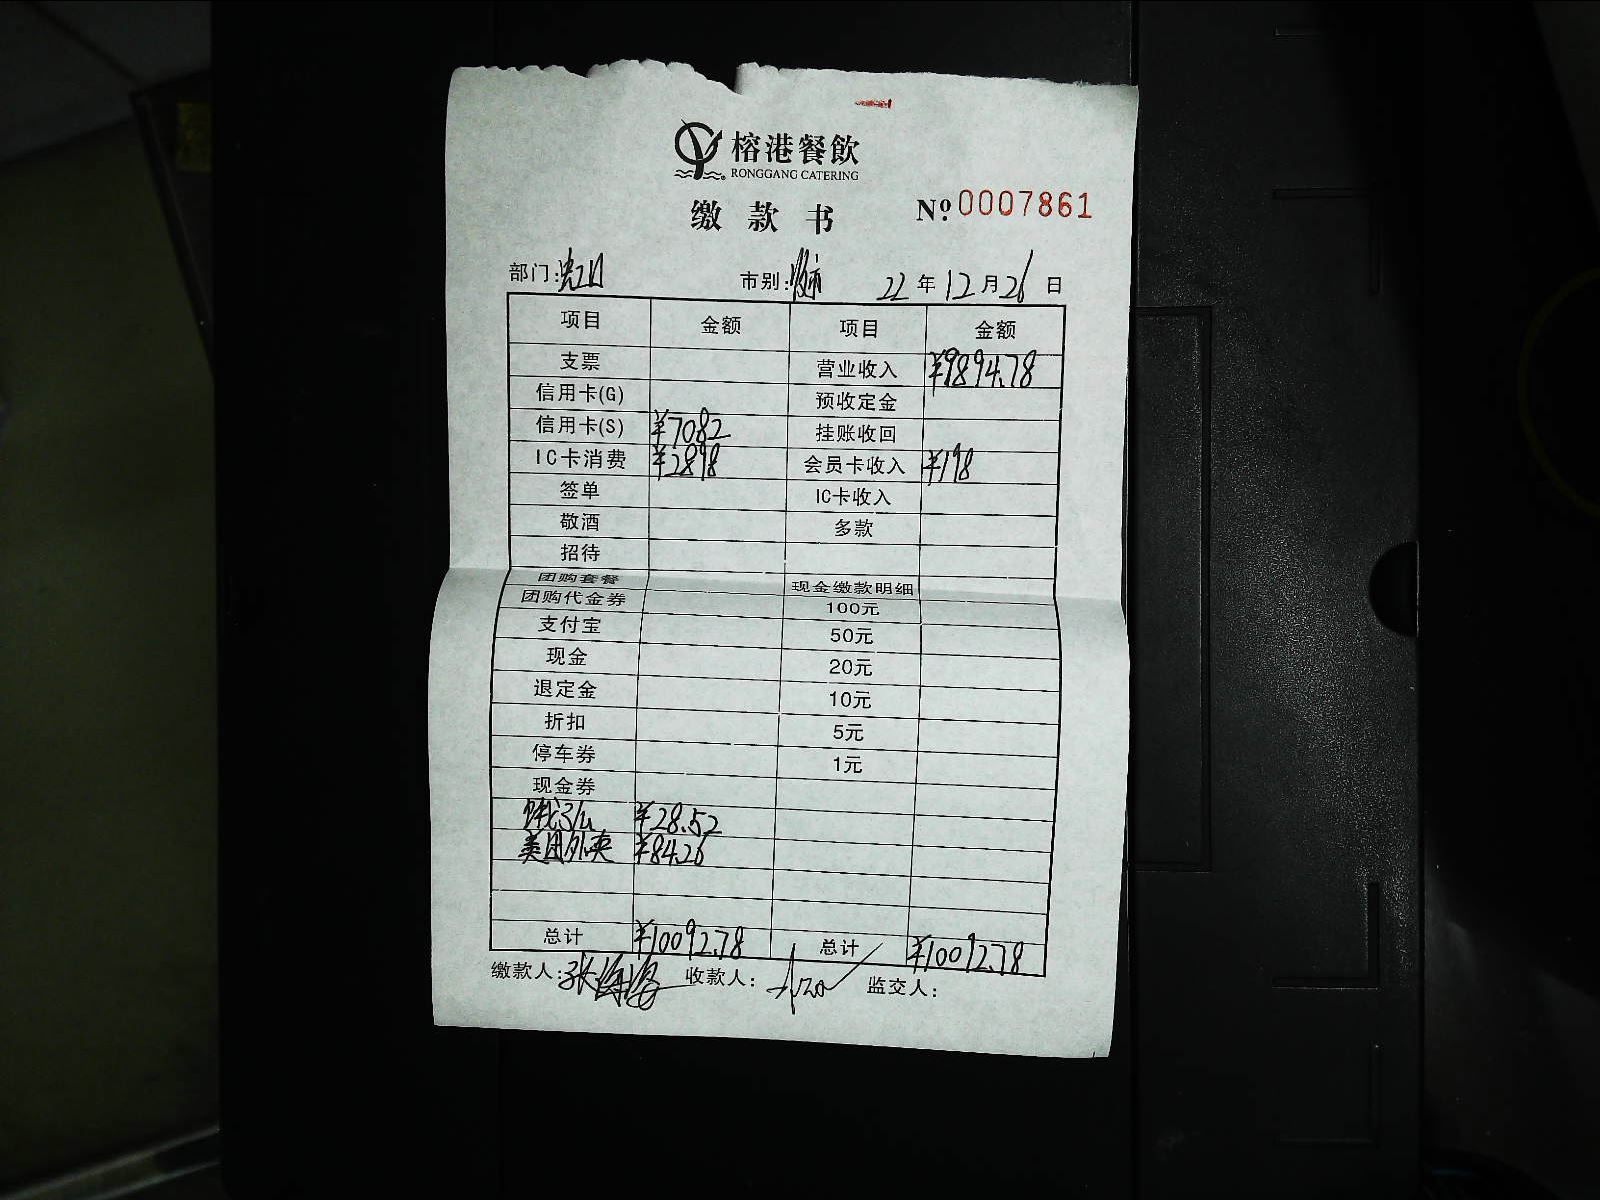 榕港餐飲
RONGGANG CATERING
缴款书 Nº.0007861
部门:虹口 市别:晚市 22年12月26日
项目 金额 项目 金额
支票 营业收入 ¥9894.78
信用卡(G) 预收定金
信用卡(S) ¥7082 挂账收回
IC卡消费 ¥2898 会员卡收入 ¥198
签单 IC卡收入
敬酒 多款
招待
团购套餐 现金缴款明细
团购代金券 100元
支付宝 50元
现金 20元
退定金 10元
折扣 5元
停车券 1元
现金券
饿了么 ¥28.52
美团外卖 ¥84.26
总计 ¥10092.78 总计 ¥10092.78
缴款人:张海 收款人: 监交人: